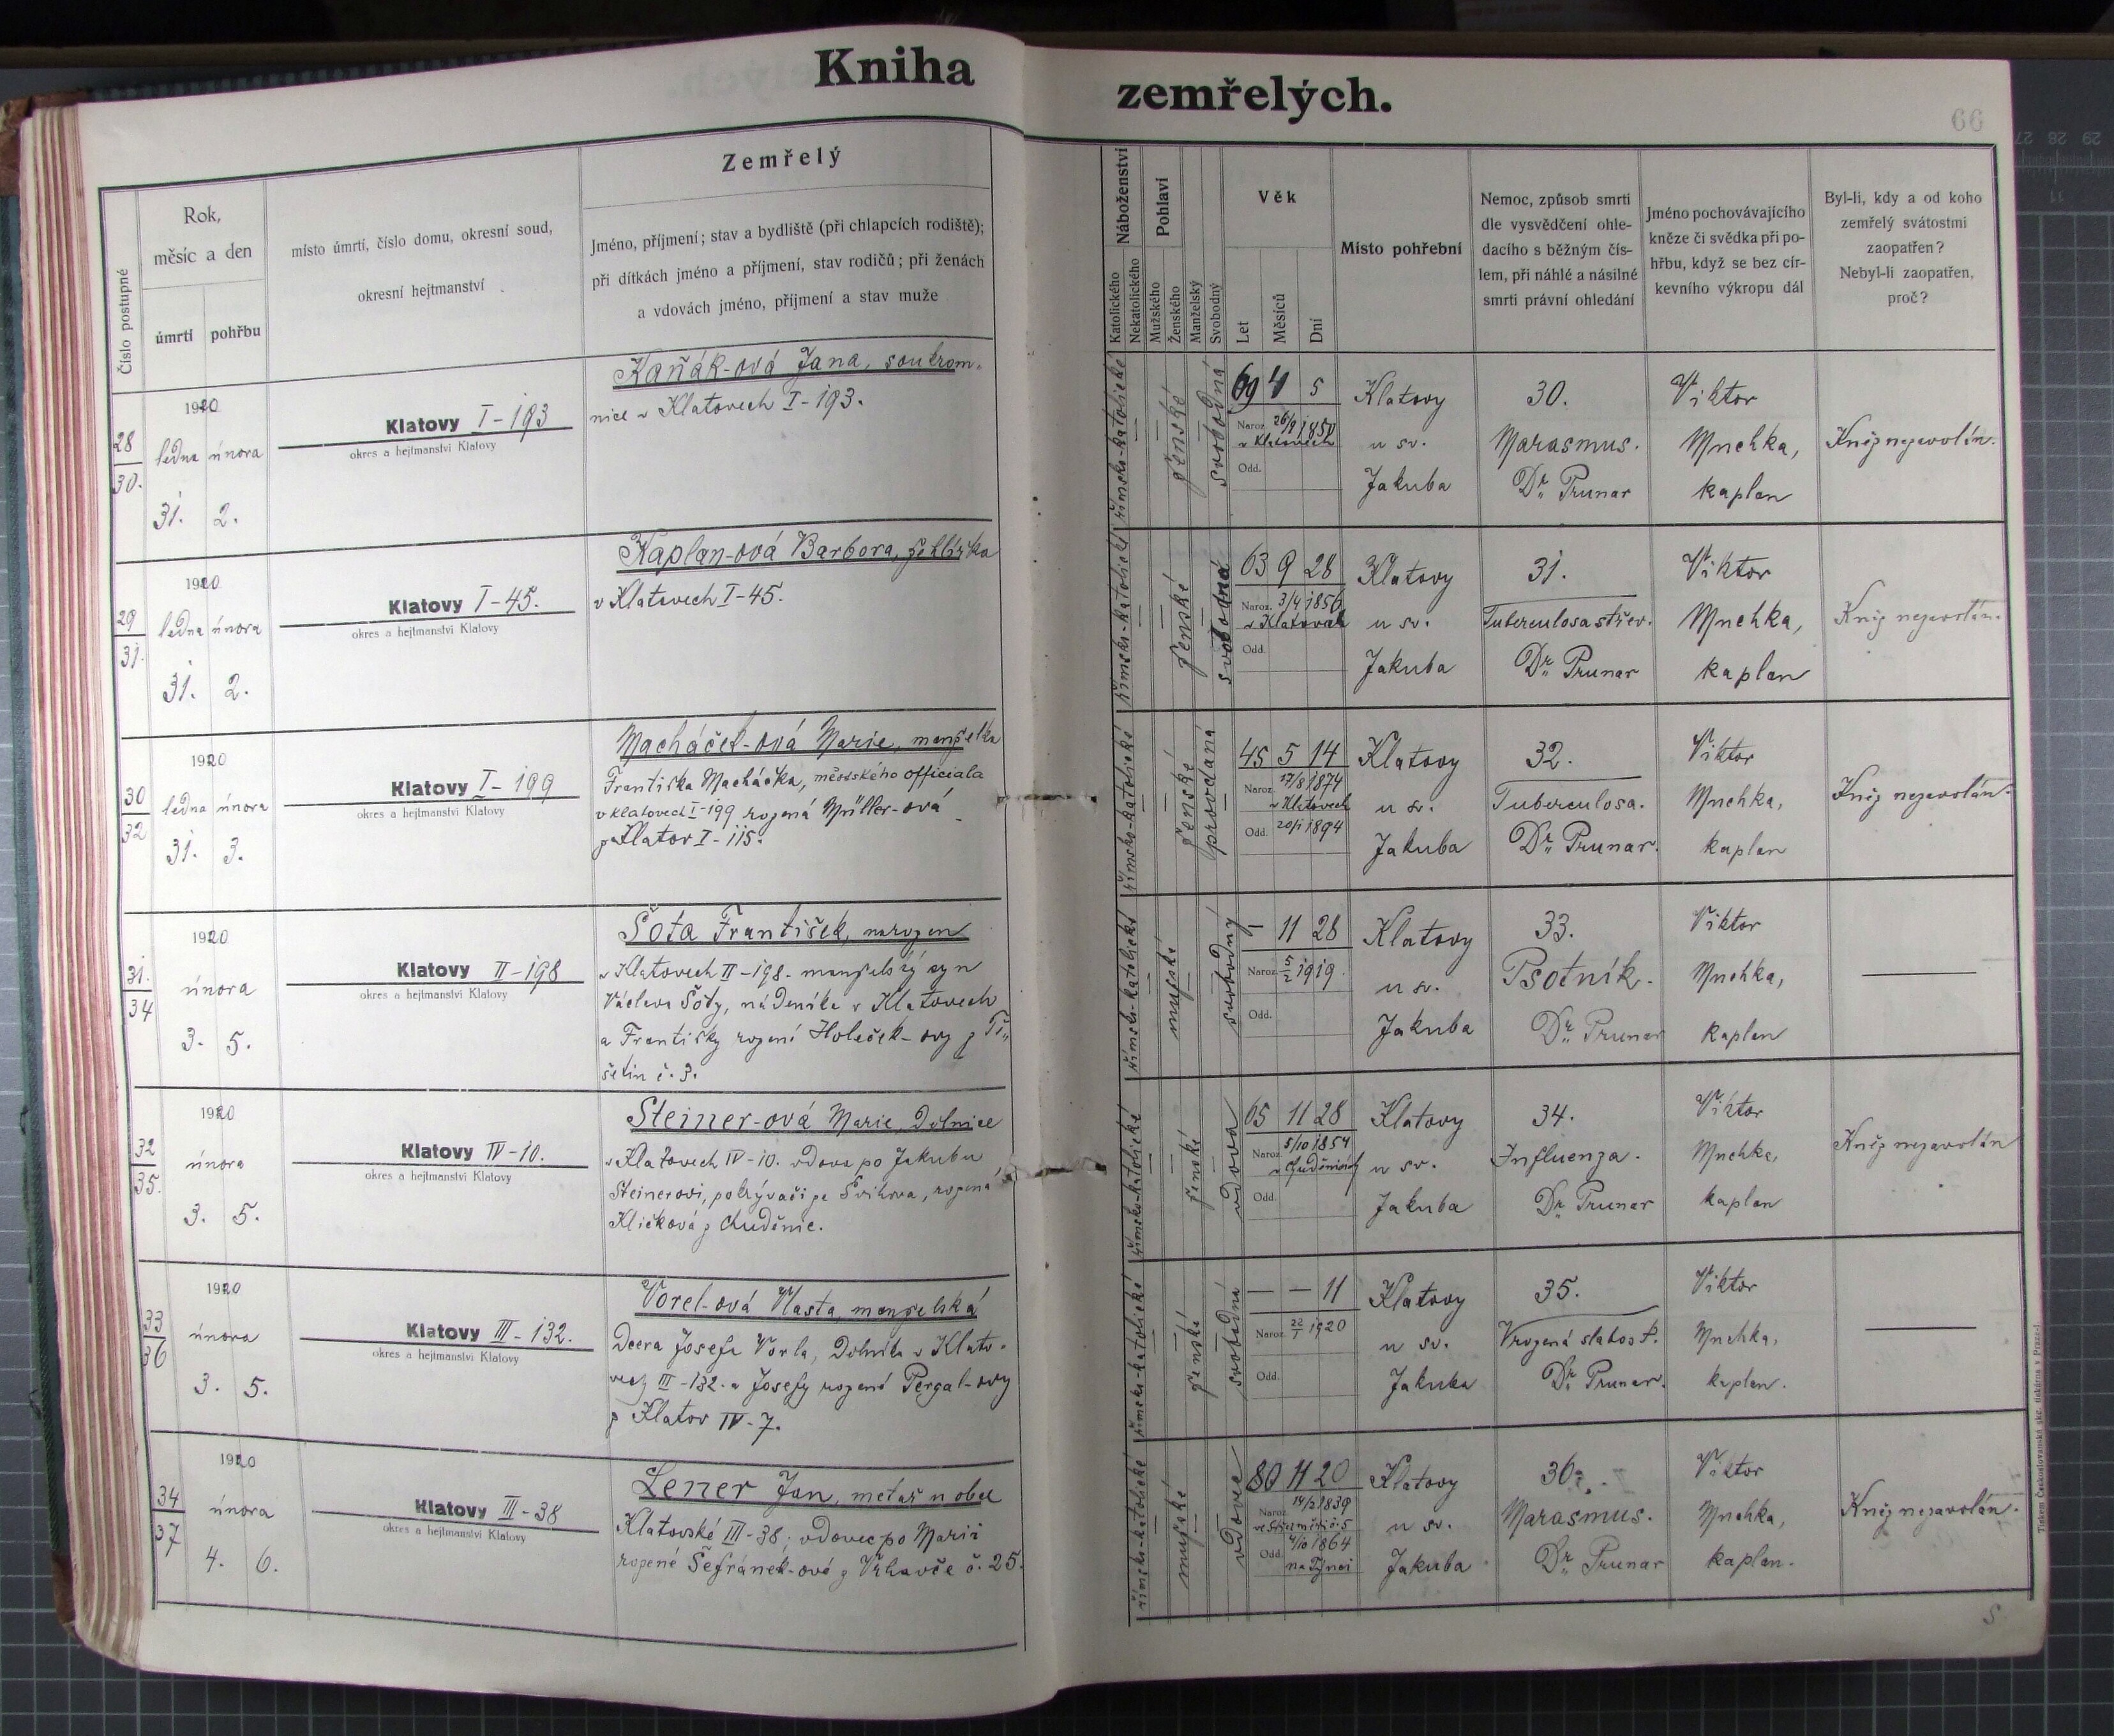 Kniha zemřelých.
66
Číslo postupné
Rok,
měsíc a den
úmrtí pohřbu
místo úmrtí, číslo domu, okresní soud,
okresní hejtmanství
Zemřelý
Jméno, příjmení; stav a bydliště (při chlapcích rodiště);
při dítkách jméno a příjmení, stav rodičů; při ženách
a vdovách jméno, příjmení a stav muže
Náboženství
Katolického
Nekatolického
Pohlaví
Mužského
Ženského
Manželský
Svobodný
Věk
Let
Měsíců
Dní
Místo pohřební
Nemoc, způsob smrti
dle vysvědčení ohle-
dacího s běžným čís-
lem, při náhlé a násilné
smrti právní ohledání
Jméno pochovávajícího
kněze či svědka při po-
hřbu, když se bez cír-
kevního výkropu dál
Byl-li, kdy a od koho
zemřelý svátostmi
zaopatřen?
Nebyl-li zaopatřen,
proč?
28
30.
1920
ledna února
31. 2.
Klatovy I-193
okres a hejtmanství Klatovy
Kaňák-ová Jana, soukrom-
nice v Klatovech I-193.
římsko-katolické
ženské
svobodná
69 4 5
Naroz. 26/9 1850
v Klatovech
Odd.
Klatovy
u sv.
Jakuba
30.
Marasmus.
Dr. Prunar
Viktor
Mnehka,
kaplan
Kněz nezavolán.
29
31.
1920
ledna února
31. 2.
Klatovy I-45.
okres a hejtmanství Klatovy
Kaplan-ová Barbora, žehlířka
v Klatovech I-45.
římsko-katolické
ženské
svobodná
63 9 28
Naroz. 3/4 1856
v Klatovech
Odd.
Klatovy
u sv.
Jakuba
31.
Tuberculosa střev.
Dr. Prunar
Viktor
Mnehka,
kaplan
Kněz nezavolán.
30
32
1920
ledna února
31. 3.
Klatovy I-199
okres a hejtmanství Klatovy
Macháček-ová Marie, manželka
Františka Macháčka, městského officiala
v Klatovech I-199 rozená Müller-ová
z Klatov I-115.
římsko-katolické
ženské
provdaná
45 5 14
Naroz. 17/8 1874
v Klatovech
Odd. 20/1 1894
Klatovy
u sv.
Jakuba
32.
Tuberculosa.
Dr. Prunar.
Viktor
Mnehka,
kaplan
Kněz nezavolán.
31.
34
1920
února
3. 5.
Klatovy II-198
okres a hejtmanství Klatovy
Šota František, narozen
v Klatovech II-198. manželský syn
Václava Šoty, nádeníka v Klatovech
a Františky rozené Holeček-ovy z Tě-
šetin č. 3.
římsko-katolické
mužské
svobodný
- 11 28
Naroz. 5/2 1919.
Odd.
Klatovy
u sv.
Jakuba
33.
Psotník.
Dr. Prunar
Viktor
Mnehka,
kaplan
32
35.
1920
února
3. 5.
Klatovy IV-10.
okres a hejtmanství Klatovy
Steiner-ová Marie, Dělnice
v Klatovech IV-10. vdova po Jakubu
Steinerovi, pokrývači ze Švihova, rozená
Kličková z Chuděnic.
římsko-katolické
ženské
vdova
65 11 28
Naroz. 5/10 1854
v Chuděnicích
Odd.
Klatovy
u sv.
Jakuba
34.
Influenza.
Dr. Prunar
Viktor
Mnehka,
kaplan
Kněz nezavolán
33
36
1920
února
3. 5.
Klatovy III-132.
okres a hejtmanství Klatovy
Vorel-ová Vlasta, manželská
dcera Josefa Vorla, Dělníka v Klato-
vech III-132. a Josefy rozené Pergal-ovy
z Klatov IV-7.
římsko-katolické
ženské
svobodná
- - 11
Naroz. 22/1 1920
Odd.
Klatovy
u sv.
Jakuba
35.
Vrozená slabost.
Dr. Prunar.
Viktor
Mnehka,
kaplan.
34
37
1920
února
4. 6.
Klatovy III-38
okres a hejtmanství Klatovy
Lener Jan, metař u obce
Klatovské III-38; vdovec po Marii
rozené Šefránek-ové z Vrhavče č. 25.
římsko-katolické
mužské
vdovec
80 11 20
Naroz. 14/2 1839
č. 5
Odd. 4/10 1864
na Týnci
Klatovy
u sv.
Jakuba
36.
Marasmus.
Dr. Prunar
Viktor
Mnehka,
kaplan.
Kněz nezavolán.
Tiskem Československé akc. tiskárna v Praze-I.